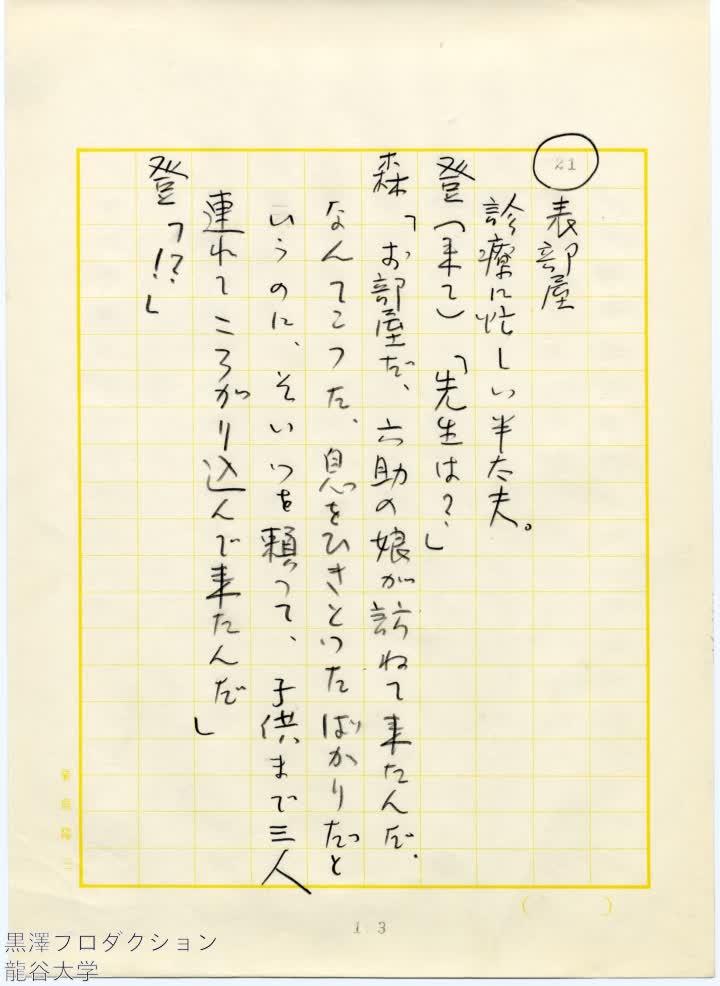 21
表部屋
診療に忙しい半太夫。
登(来て)「先生は?」
森「お部屋だ、六助の娘が訪ねて来たんだ、
なんてこった、息をひきとったばかりだと
いうのに、そいつを頼って、子供まで三人
連れてころがり込んで来たんだ」
登「!?」
1 3
黒澤プロダクション
龍谷大学